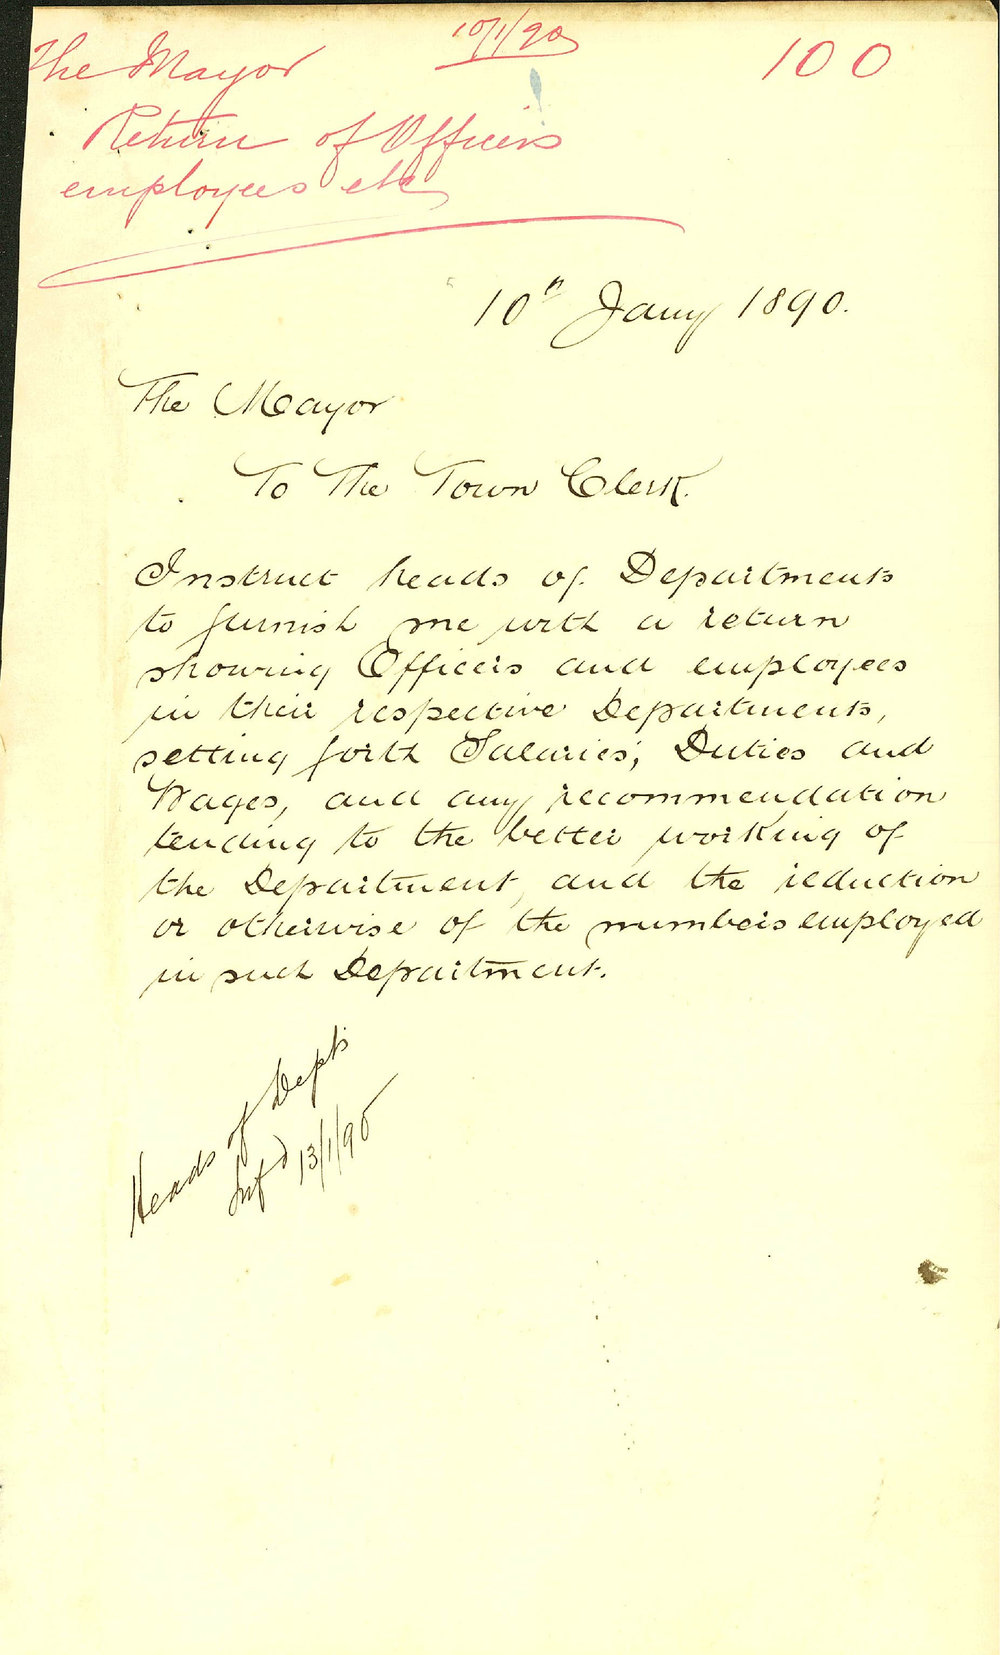 The Mayor 10/1/90 100
Return of Officers
employees etc
10th Jany 1890.
The Mayor
To The Town Clerk.
Instruct heads of Departments
to furnish me with a return
showing Officers and employees
in their respective Departments,
setting forth Salaries, Duties and
Wages, and any recommendation
tending to the better working of
the Department, and the reduction
or otherwise of the numbers employed
in such Department.
Heads of Depts
Infd 13/1/90